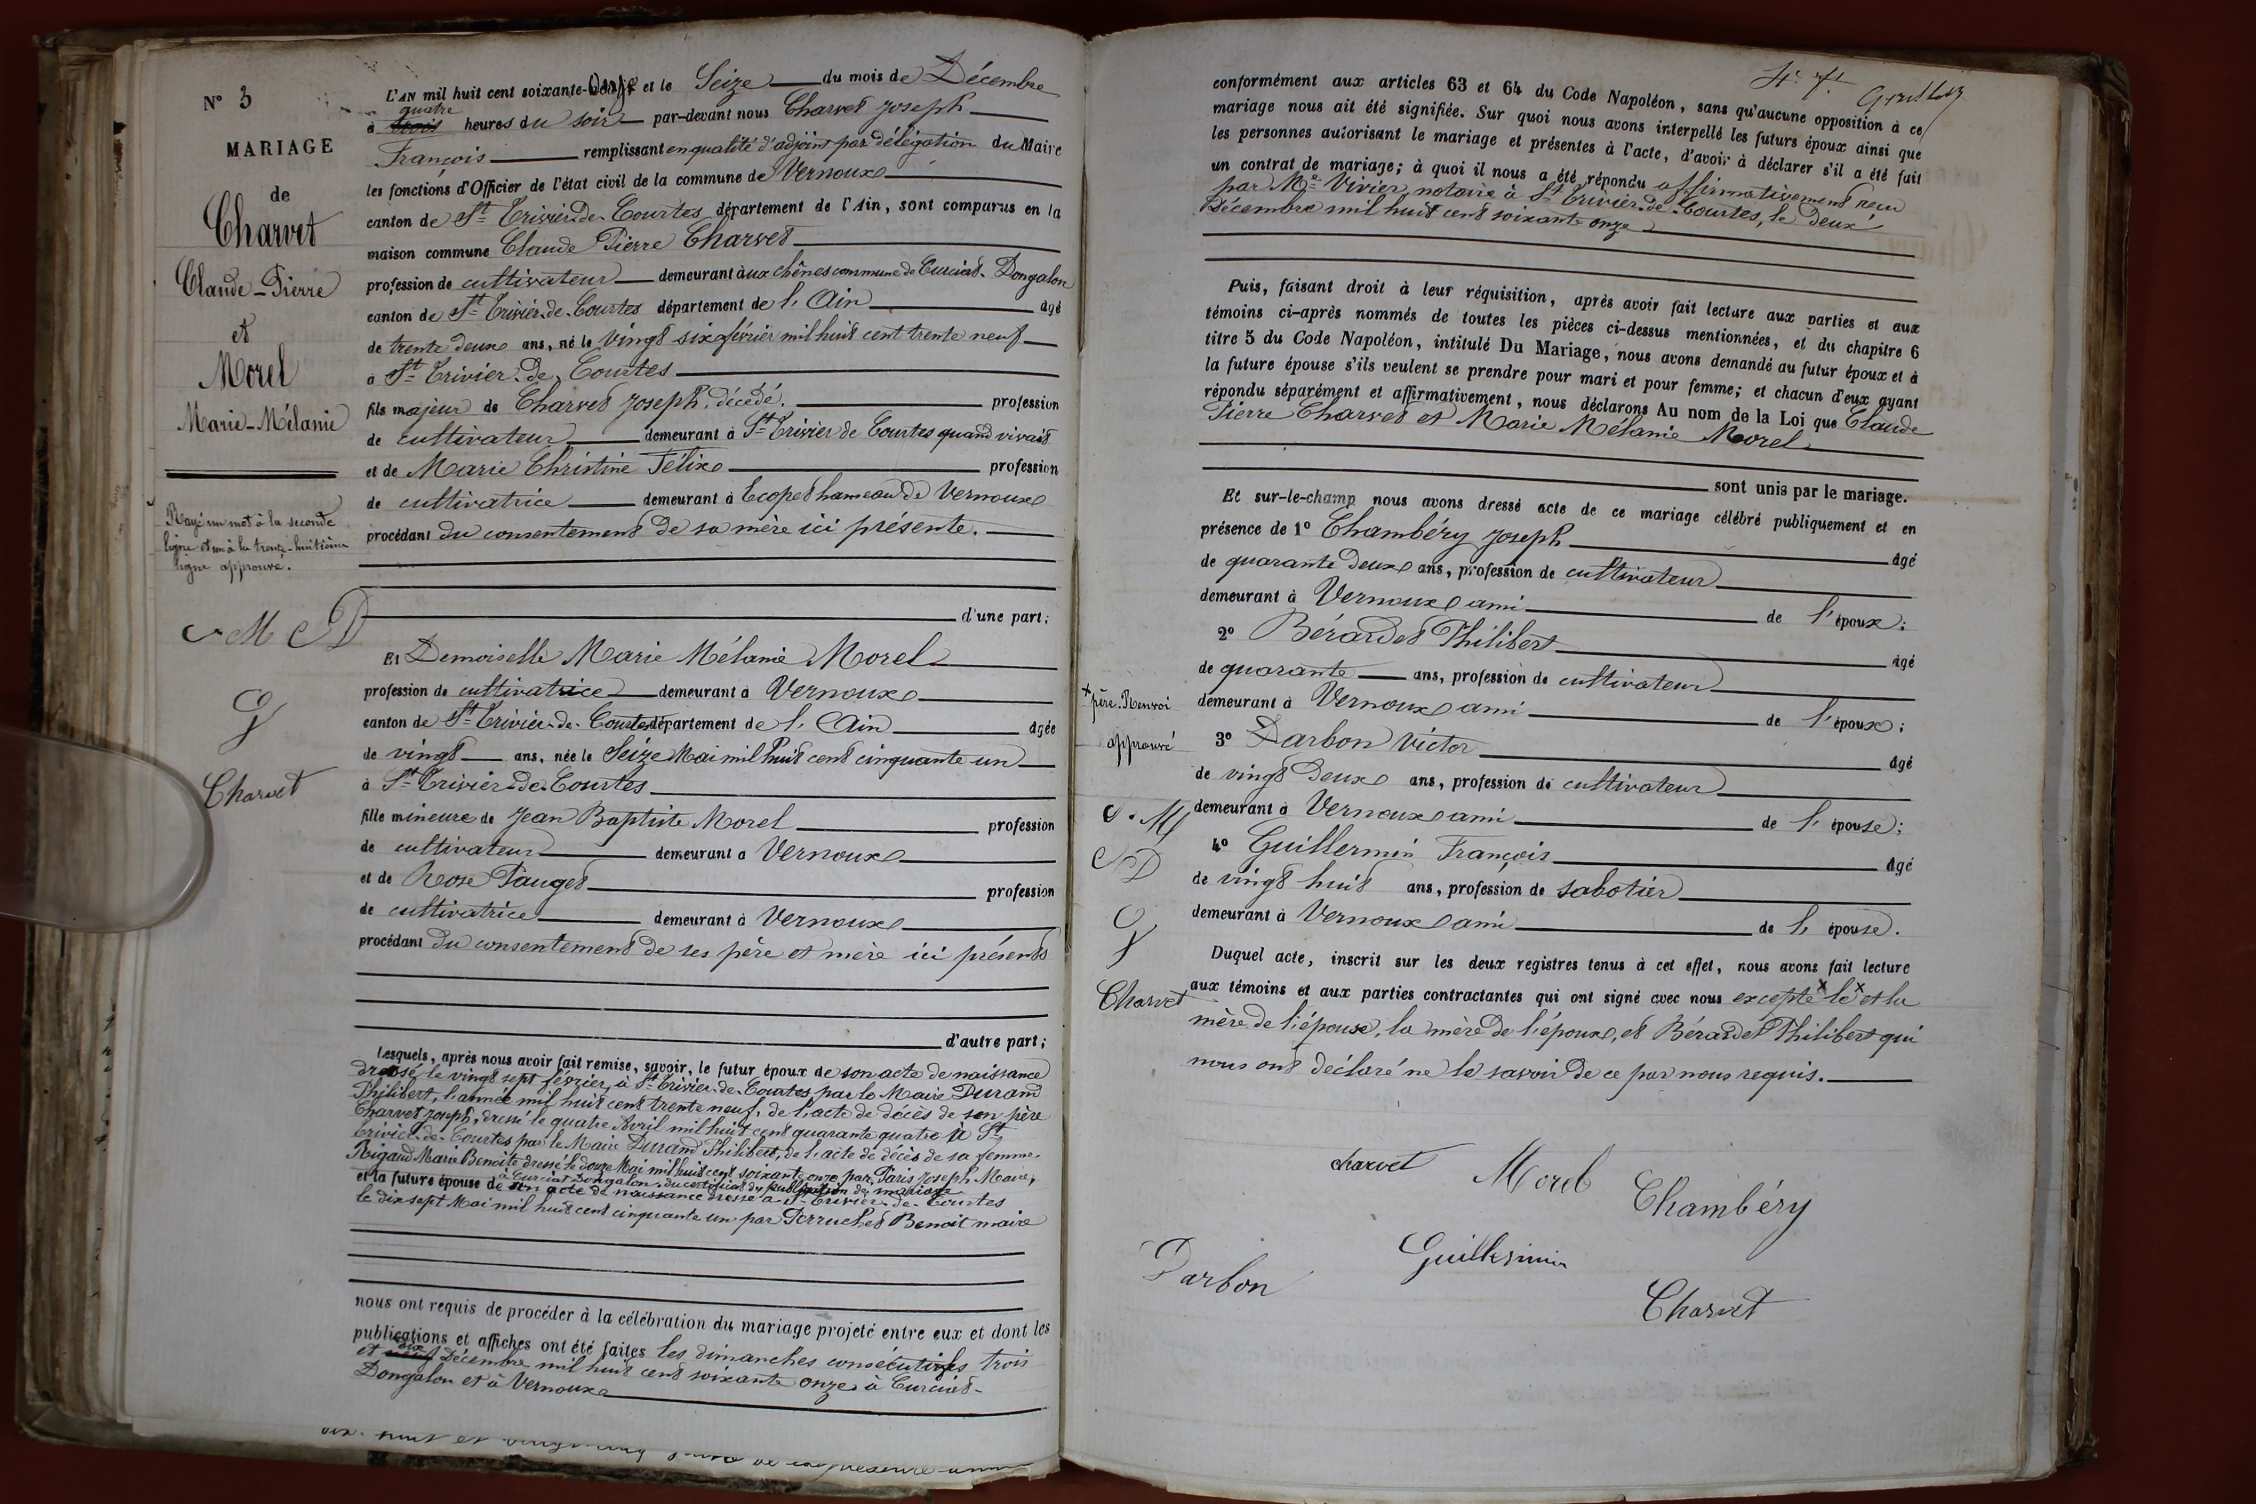 N° 3
MARIAGE
de
Charvet
Claude-Pierre
et
Morel
Marie-Mélanie
Rayé un mot à la seconde
ligne et un à la trente-huitième
ligne approuvé.
M D
G
Charvet
L'AN mil huit cent soixante-Onze et le Seize du mois de Décembre
quatre
à trois heures du soir par-devant nous Charvet Joseph
François remplissant en qualité d'adjoint par délégation du Maire
les fonctions d'Officier de l'état civil de la commune de Vernoux
canton de St Trivier-de-Courtes département de l'Ain, sont comparus en la
maison commune Claude Pierre Charvet
profession de cultivateur demeurant aux chênes commune de Curciat-Dongalon
canton de St Trivier-de-Courtes département de l'Ain agé
de trente deux ans, né le vingt six février mil huit cent trente neuf
à St Trivier-de-Courtes
fils majeur de Charvet Joseph, décédé. profession
de cultivateur demeurant à St Trivier de Courtes quand vivait
et de Marie Christine Félix profession
de cultivatrice demeurant à Ecopet hameau de Vernoux
procédant du consentement de sa mère ici présente.
d'une part;
Et Demoiselle Marie Mélanie Morel
profession de cultivatrice demeurant à Vernoux
canton de St Trivier-de-Courtes département de l'Ain agée
de vingt ans, née le Seize Mai mil huit cent cinquante un
à St Trivier-de-Courtes
fille mineure de Jean Baptiste Morel profession
de cultivateur demeurant à Vernoux
et de Rose Pauget profession
de cultivatrice demeurant à Vernoux
procédant du consentement de ses père et mère ici présents
d'autre part;
Lesquels, après nous avoir fait remise, savoir, le futur époux de son acte de naissance
dressé le vingt sept février, à St Trivier-de-Courtes par le Maire Durand
Philibert, l'année mil huit cent trente neuf, de l'acte de décès de son père
Charvet Joseph, dressé le quatre Avril mil huit cent quarante quatre à St
Trivier-de-Courtes par le Maire Durand Philibert, de l'acte de décès de sa femme
Rigaud Marie Benoite dressé le douze Mai mil huit cent soixante onze par Paris Joseph Maire,
à Curciat Dongalon, du certificat de publication de mariage
et la future épouse de son acte de naissance dressé à St Trivier-de-Courtes
le dix sept Mai mil huit cent cinquante un par Perruchet Benoit maire
nous ont requis de procéder à la célébration du mariage projeté entre eux et dont les
publications et affiches ont été faites les dimanches consécutifs trois
dix
et Décembre mil huit cent soixante onze à Curciat-
Dongalon et à Vernoux
4e ft
conformément aux articles 63 et 64 du Code Napoléon, sans qu'aucune opposition à ce
mariage nous ait été signifiée. Sur quoi nous avons interpellé les futurs époux ainsi que
les personnes autorisant le mariage et présentes à l'acte, d'avoir à déclarer s'il a été fait
un contrat de mariage; à quoi il nous a été répondu affirmativement reçu
par Me Vivier, notaire à St Trivier-de-Courtes, le deux
Décembre mil huit cent soixante onze
Puis, faisant droit à leur réquisition, après avoir fait lecture aux parties et aux
témoins ci-après nommés de toutes les pièces ci-dessus mentionnées, et du chapitre 6
titre 5 du Code Napoléon, intitulé Du Mariage, nous avons demandé au futur époux et à
la future épouse s'ils veulent se prendre pour mari et pour femme; et chacun d'eux ayant
répondu séparément et affirmativement, nous déclarons Au nom de la Loi que Claude
Pierre Charvet et Marie Mélanie Morel
sont unis par le mariage.
Et sur-le-champ nous avons dressé acte de ce mariage célébré publiquement et en
présence de 1° Chambéry Joseph agé
de quarante deux ans, profession de cultivateur
demeurant à Vernoux ami de l'époux;
2° Bérardet Philibert agé
de quarante ans, profession de cultivateur
demeurant à Vernoux ami de l'époux;
3° Darbon Victor agé
de vingt deux ans, profession de cultivateur
demeurant à Vernoux ami de l'épouse;
4° Guillermin François agé
de vingt huit ans, profession de sabotier
demeurant à Vernoux ami de l'épouse.
Duquel acte, inscrit sur les deux registres tenus à cet effet, nous avons fait lecture
aux témoins et aux parties contractantes qui ont signé avec nous excepté le x et la
mère de l'épouse, la mère de l'époux, et Bérardet Philibert qui
nous ont déclaré ne le savoir de ce par nous requis.
x père. Renvoi
approuvé
C. M
D
G
Charvet
charvet
Morel
Chambéry
Darbon
Guillermin
Charvet